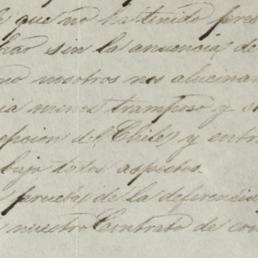 que no ha tenido
sin la anuencia de
nosotros nos alucinan
menos tramposo y
del Chile y entr
bajo todos aspectos.
pruebas de la deferencia
nuestro Contrato de con